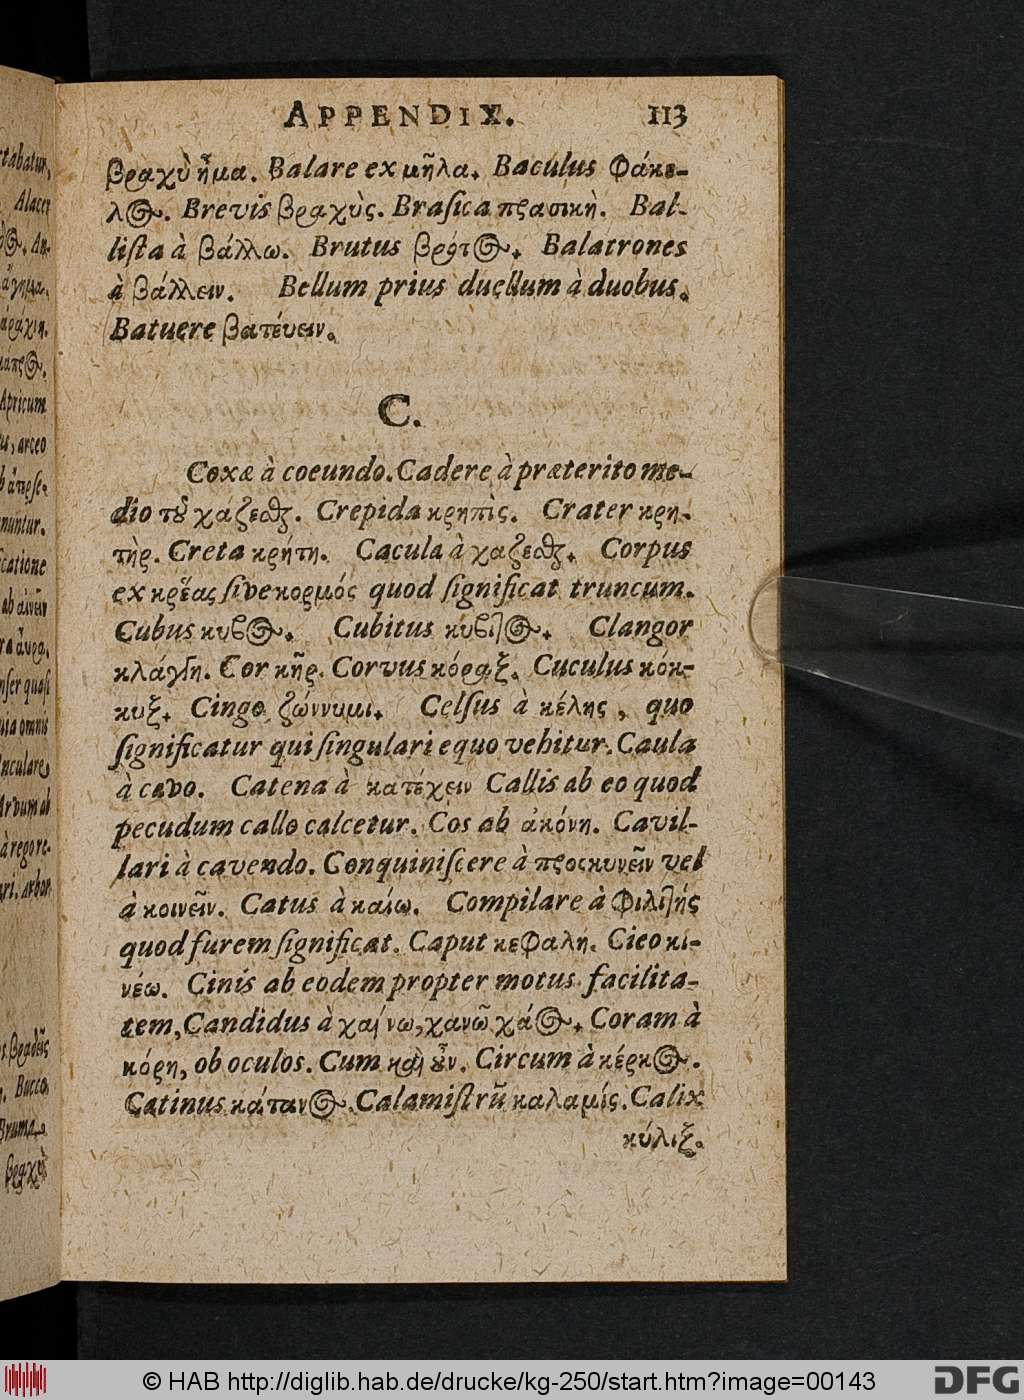 APPENDIX. 113
βραχὺ ἦμα. Balare ex μῆλα. Baculus φάκε-
λος. Brevis βραχὺς. Braſica πρασικὴ. Bal-
liſta à βάλλω. Brutus βρότος. Balatrones
à βάλλειν. Bellum prius duellum à duobus.
Batuere βατέυειν.
C.
Coxæ à coeundo. Cadere à præterito me-
dio τȣ χάζεσθ. Crepida κρηπὶς. Crater κρη-
τὴρ. Creta κρήτη. Cacula à χαζεσθ. Corpus
ex κρέας ſive κορμός quod ſignificat truncum.
Cubus κυβος. Cubitus κυβιτος. Clangor
κλάγγη. Cor κῆρ. Corvus κόραξ. Cuculus κόκ-
κυξ. Cingo ζώννυμι. Celſus à κέλης, quo
ſignificatur qui ſingulari equo vehitur. Caula
à cavo. Catena à κατέχειν Callis ab eo quod
pecudum callo calcetur. Cos ab ἀκόνη. Cavil-
lari à cavendo. Conquiniſcere à προςκυνεῖν vel
à κοινεῖν. Catus à καίω. Compilare à φιλιτής
quod furem ſignificat. Caput κεφαλη. Cieo κι-
νέω. Cinis ab eodem propter motus facilita-
tem, Candidus à χαίνω, χανῶ χάος. Coram à
κόρη, ob oculos. Cum καὶ ȣν. Circum à κέρκος.
Catinus κάτανος. Calamiſtrũ καλαμίς. Calix
κύλιξ.
rtabatur,
Alacer
Apricum
us, arceo
nuntur.
ficatione
ab αἰνεῖν
ra αὔρα,
nſer quaſi
uia omnis
Arvum ab
à regere.
ari. arbor
Bucco,
Bruma
βραχὺ
© HAB http://diglib.hab.de/drucke/kg-250/start.htm?image=00143
DFG